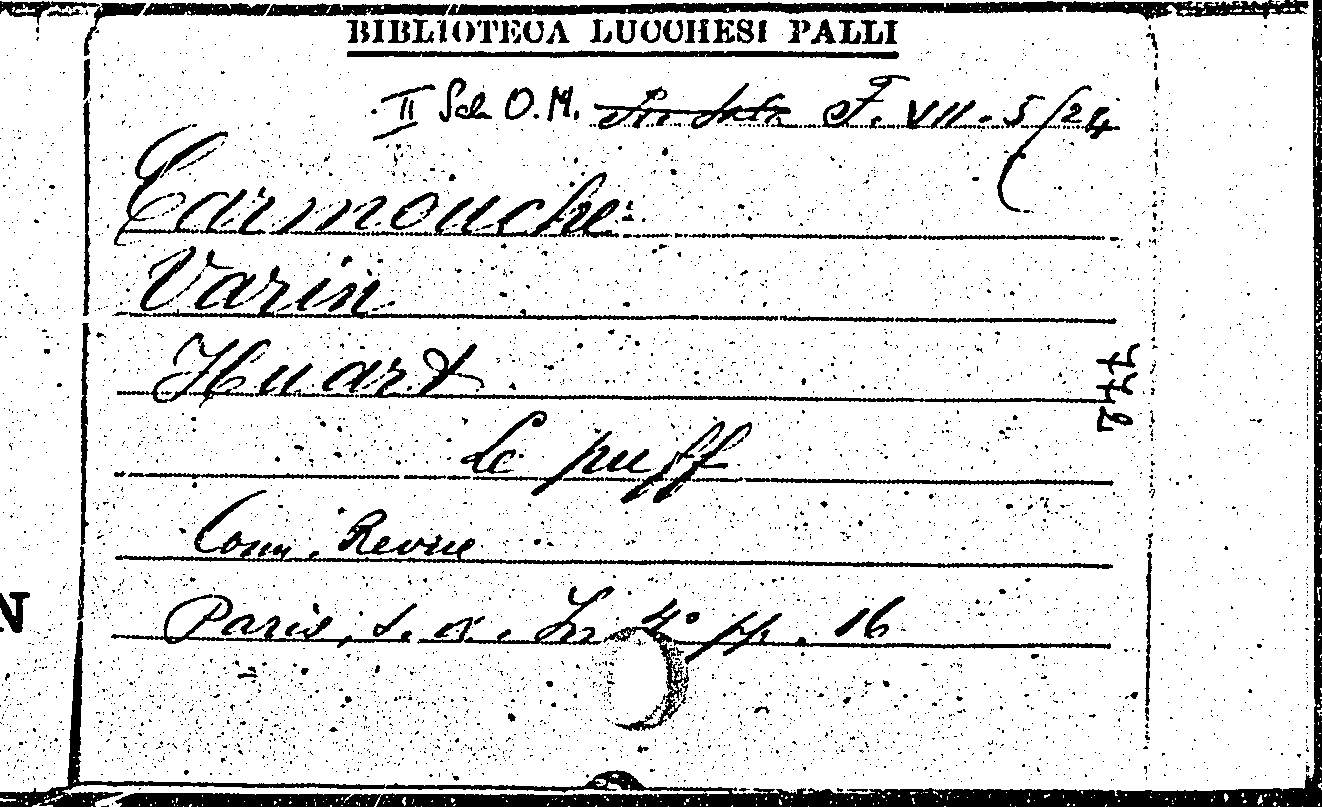 BIBLIOTECA LUCCHESI PALLI
II Sch O.M. F. VII. 5/24
Carmouche
Varin
Huart
Le puff
Com. Revue
Paris, s. a. In 4° pp. 16
N